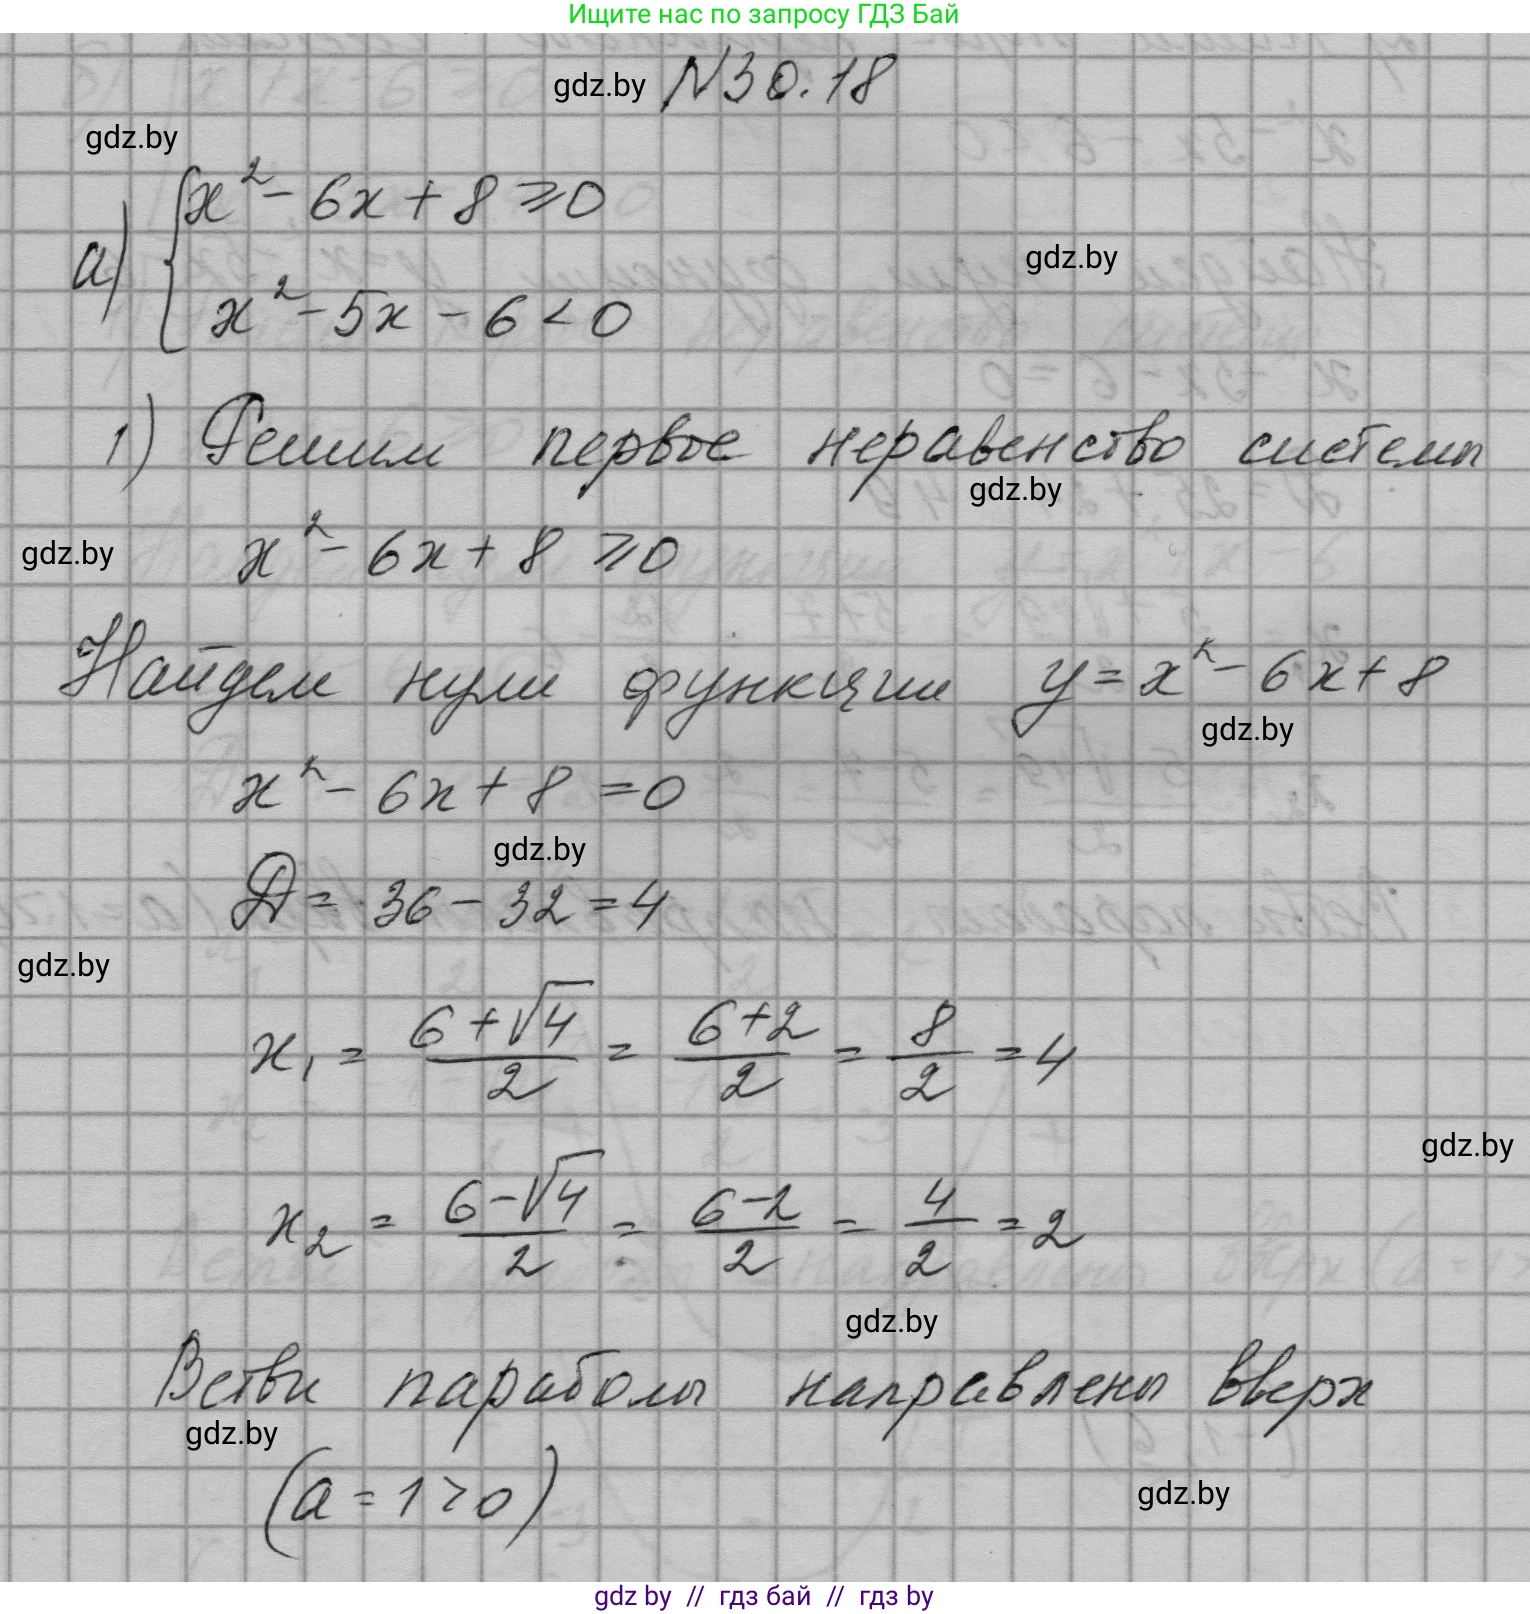 Ищите нас по запросу ГДЗ Бай
gdz.by
N30.18
gdz.by
а) { x² - 6x + 8 ≥ 0
gdz.by
x² - 5x - 6 < 0
1) Решим первое неравенство системы
gdz.by
x² - 6x + 8 ≥ 0
gdz.by
Найдем нули функции y = x² - 6x + 8
gdz.by
x² - 6x + 8 = 0
gdz.by
D = 36 - 32 = 4
gdz.by
x₁ = (6 + √4)/2 = (6 + 2)/2 = 8/2 = 4
gdz.by
x₂ = (6 - √4)/2 = (6 - 2)/2 = 4/2 = 2
gdz.by
Ветви параболы направлены вверх
gdz.by
(a = 1 > 0)
gdz.by
gdz by // гдз бай // гдз by